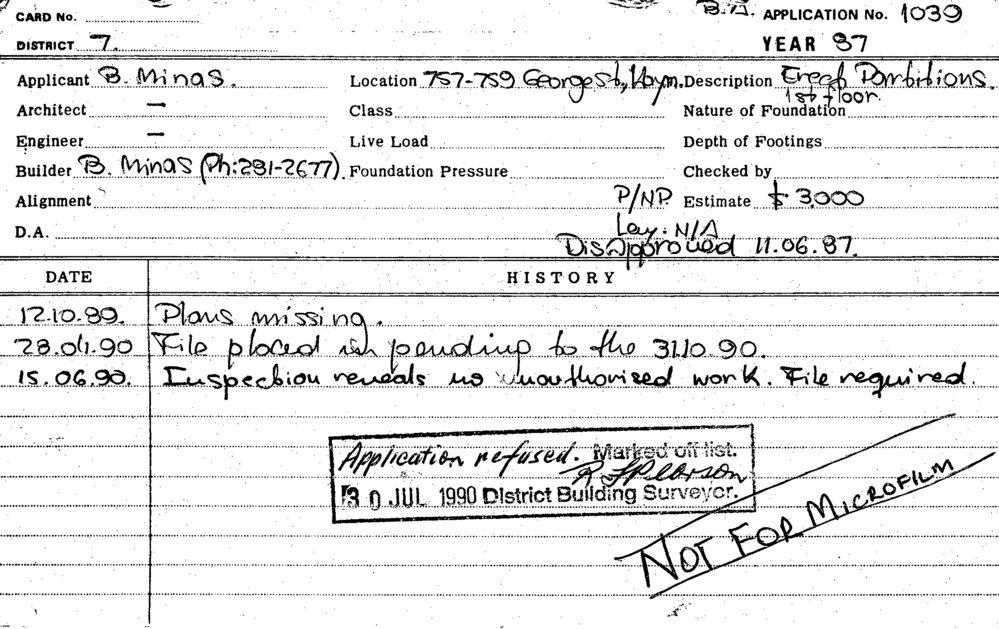 CARD No.
B.A. APPLICATION No. 1039
DISTRICT 7.
YEAR 87
Applicant B. Minas. Location 757-759 George st, Haym. Description Erect Partitions. 1st floor.
Architect — Class Nature of Foundation
Engineer — Live Load Depth of Footings
Builder B. Minas (Ph: 281-2677). Foundation Pressure Checked by
Alignment P/NP. Estimate $ 3,000
D.A. Ley: N/A
Disapproved 11.06.87.
DATE HISTORY
12.10.89. Plans missing.
28.04.90 File placed in pending to the 31.10.90.
15.06.90. Inspection reveals no unauthorised work. File required.
Application refused. Marked off list.
30 JUL 1990 District Building Surveyor.
NOT FOR MICROFILM